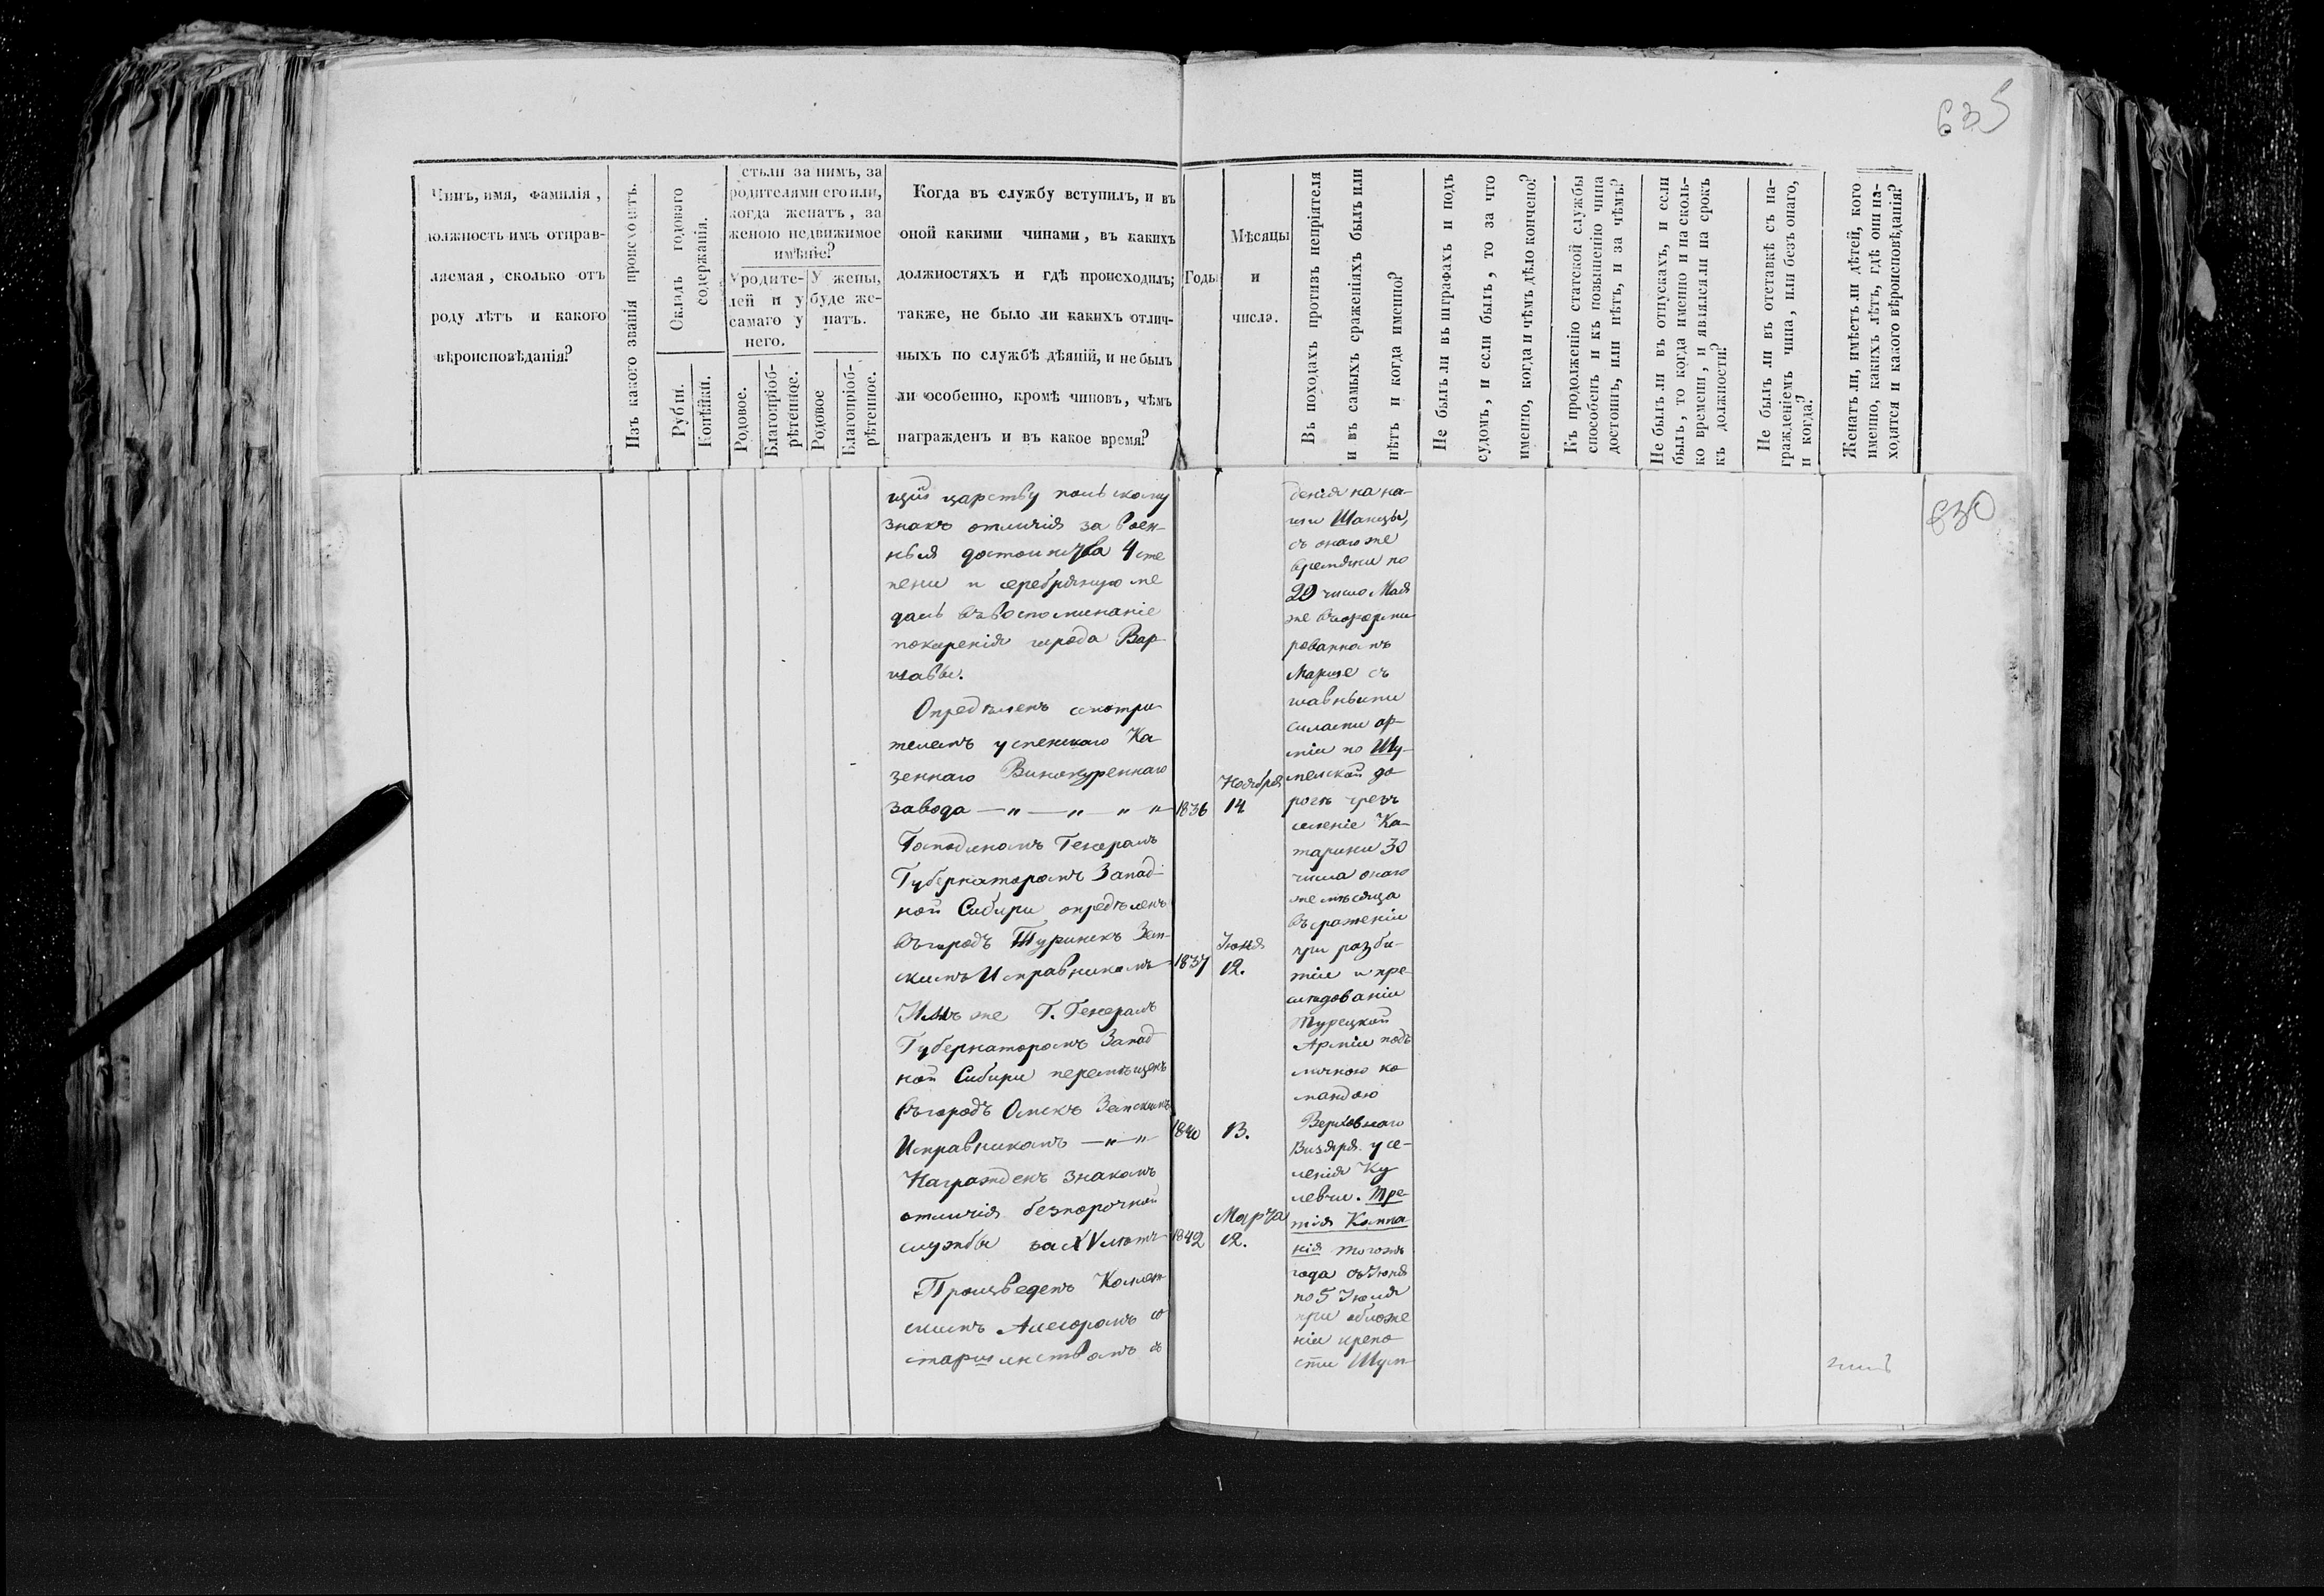 635
Чинъ, имя, фамилія,
должность имъ отправ-
ляемая, сколько отъ
роду лѣтъ и какого
вѣроисповѣданія?
Изъ какого званія происходитъ.
Окладъ годоваго
содержанія.
Рубли.
Копѣйки.
сть ли за нимъ, за
родителями его или,
когда женатъ, за
женою недвижимое
имѣніе?
У родите-
лей и у
самаго у
него.
У жены,
буде же-
натъ.
Родовое.
Благопріоб-
рѣтенное.
Родовое
Благопріоб-
рѣтенное.
Когда въ службу вступилъ, и въ
оной какими чинами, въ какихъ
должностяхъ и гдѣ происходилъ;
также, не было ли какихъ отлич-
ныхъ по службѣ дѣяній, и не былъ
ли особенно, кромѣ чиновъ, чѣмъ
награжденъ и въ какое время?
Годы
Мѣсяцы
и
числа.
Въ походахъ противъ непріятеля
и въ самыхъ сраженіяхъ былъ или
нѣтъ и когда именно?
Не былъ ли въ штрафахъ и подъ
судомъ, и если былъ, то за что
именно, когда и чѣмъ дѣло кончено?
Къ продолженію статской службы
способенъ и къ повышенію чина
достоинъ, или нѣтъ, и за чѣмъ?
Не былъ ли въ отпускахъ, и если
былъ, то когда именно и на сколь-
ко времени, и являлся ли на срокъ
къ должности?
Не былъ ли въ отставкѣ съ на-
гражденіемъ чина, или безъ онаго,
и когда?
Женатъ ли, имѣетъ ли дѣтей, кого
именно, какихъ лѣтъ, гдѣ они на-
ходятся и какого вѣроисповѣданія?
щій царству польскому
знакъ отличія за воен-
ныя достоинства 4 сте
пени и серебряную ме
даль въ воспоминаніе
покоренія города Вар-
шавы.
Опредѣленъ смотри-
телемъ успенскаго Ка-
зеннаго Винокуреннаго
завода — " — " — " "
1836
Ноября
14
Господиномъ Генералъ
Губернаторомъ Запад-
ной Сибири опредѣленъ
въ городъ Туринскъ Зем-
скимъ Исправникомъ
1837
Іюня
12.
Имъ же Г. Генералъ
Губернаторомъ Запад
ной Сибири перемѣщенъ
въ городъ Омскъ Земскимъ
Исправникомъ — " — "
1840
13.
Награжденъ знакомъ
отличія безпорочной
службы за XV лѣтъ
1842
Марта
12.
Произведенъ Коллеж
скимъ Асессоромъ со
старшинствомъ съ
денія на на-
ши Шанцы,
съ онаго же
времяни по
29 число Мая
же въ форми
рованномъ
Марше съ
главными
силами ар-
міи по Шу-
мельской до
роге чрезъ
селеніе Ка-
марини 30
числа онаго
же мѣсяца
въ сраженіи
при разби-
тіи и пре-
следованіи
Турецкой
Арміи подъ
личною ко
мандою
Верховнаго
Визиря у се-
ленія Ку
левчи. Тре-
тія Компа-
нія тогожъ
года съ Іюня
по 5 Іюля
при обложе
ніи крепо
сти Шум-
630